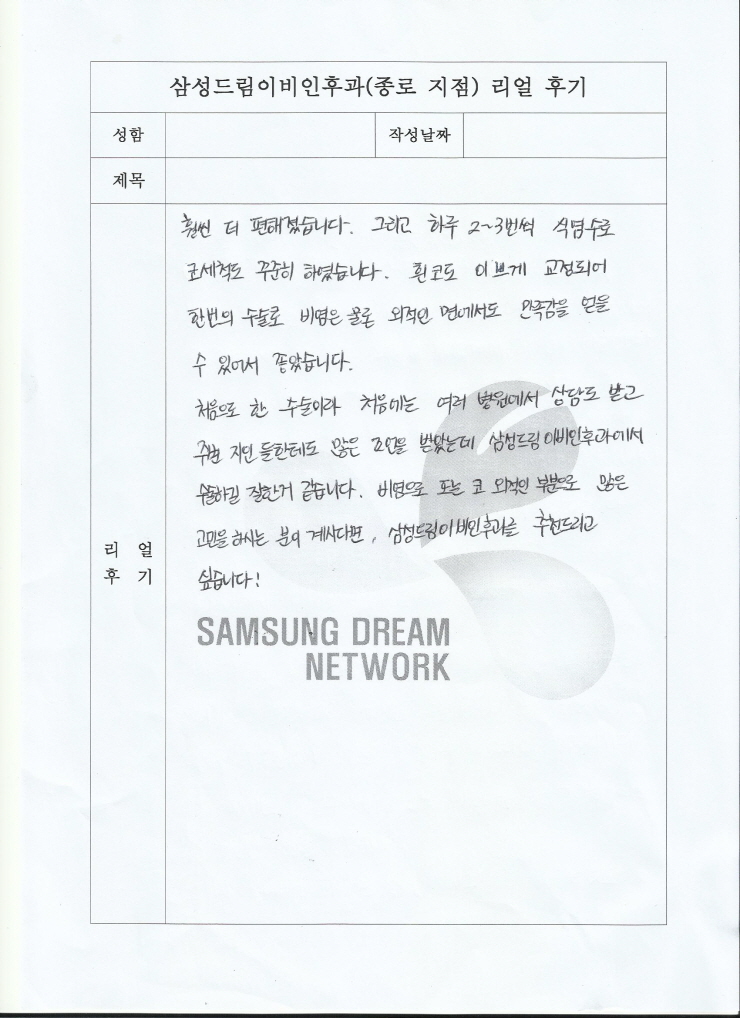 삼성드림이비인후과(종로 지점) 리얼 후기
성함 작성날짜
제목
훨씬 더 편해졌습니다. 그리고 하루 2~3번씩 식염수로
코세척도 꾸준히 하였습니다. 휜코도 이쁘게 교정되어
한번의 수술로 비염은 물론 외적인 면에서도 만족감을 얻을
수 있어서 좋았습니다.
처음으로 한 수술이라 처음에는 여러 병원에서 상담도 받고
주변 지인들한테도 많은 조언을 받았는데 삼성드림이비인후과에서
수술하길 잘한거 같습니다. 비염으로 또는 코 외적인 부분으로 많은
고민을 하시는 분이 계시다면, 삼성드림이비인후과를 추천드리고
싶습니다!
리 얼
후 기
SAMSUNG DREAM
NETWORK